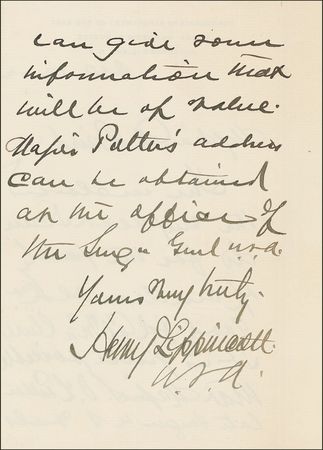 can give some
information that
will be of value.
Major Potter's address
can be obtained
at the office of
the Surg - Genl U.S.A.
Yours very truly.
Henry Lippincott
U.S.A.